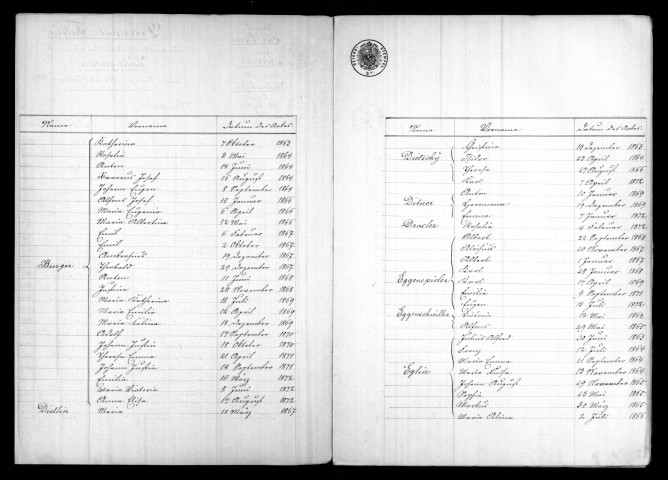 Name Vorname Datum des Actes.
Katharina 7 Oktober 1863
Rosalia 2 Mai 1864
Anton 14 Juni 1864
Xaverius Josef 16 August 1864
Johann Eugen 8 September 1864
Alfons Josef 18 Januar 1866
Maria Eugenia 6 April 1866
Maria Albertina 12 Mai 1866
Emil 6 Februar 1867
Emil 2 Oktober 1867
Ambrosius 19 Dezember 1867
Burger Theobald 29 Dezember 1867
Anton 11 Juni 1868
Justina 28 November 1868
Maria Katharina 18 Juli 1869
Maria Emilia 16 April 1869
Maria Sabina 18 Dezember 1869
Adolf 17 September 1870
Johann Justin 18 Oktober 1870
Theresa Emma 21 April 1871
Johann Justin 16 September 1871
Emilia 16 März 1872
Maria Viktoria 8 Juni 1872
Anna Elisa 17 August 1872
Dietlin Maria 11 März 1867
Name Vorname Datum des Actes.
Christina 19 Dezember 1863
Dietschy Viktor 22 April 1864
Theresa 27 August 1866
Karl 7 April 1872
Anton 10 Januar 1869
Ditner Hermann 19 Dezember 1869
Emma 7 Januar 1872
Drexler Rosalia 4 Februar 1872
Albert 22 September 1868
Aloisius 20 November 1867
Albert 1 Januar 1867
Karl 28 Januar 1868
Eggenspieler Karl 17 April 1869
Emilia 9 September 1871
Eugen 18 Juli 1872
Eggenschwiller Viktoria 12 Mai 1863
Alfons 29 Mai 1865
Julius Alfred 30 Juni 1863
Franz 12 Juli 1864
Maria Emma 21 September 1864
Eglin Maria Luisa 12 November 1864
Johann August 29 November 1865
Sophia 63 Mai 1865
Markus 30 März 1865
Maria Alina 2 Juli 1866